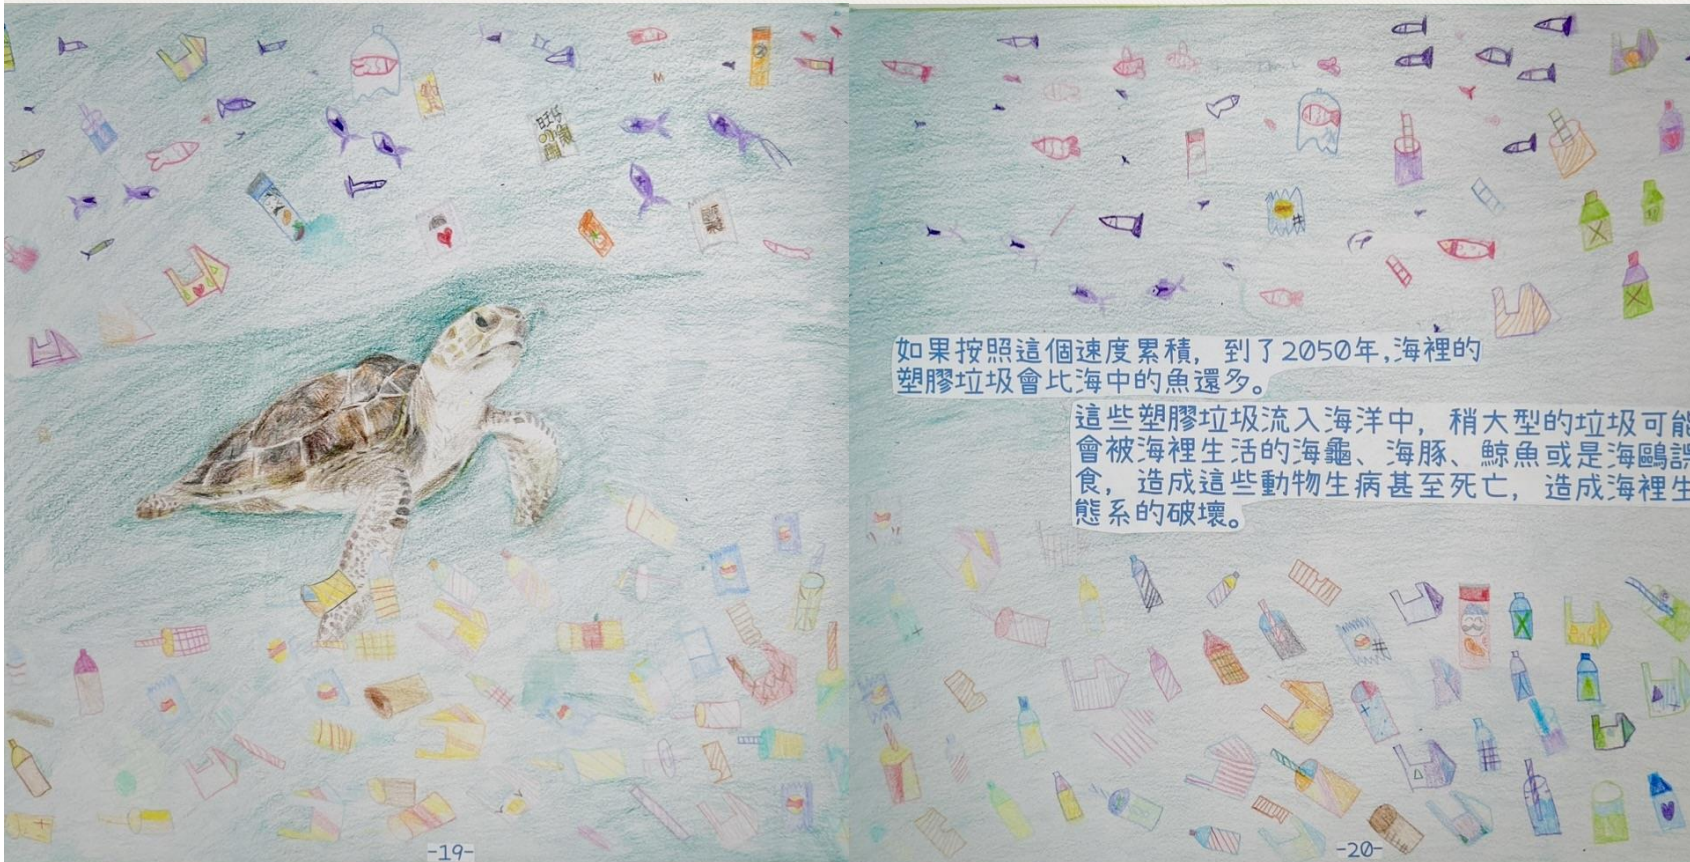 旺仔
如果按照這個速度累積，到了2050年,海裡的
塑膠垃圾會比海中的魚還多。
這些塑膠垃圾流入海洋中，稍大型的垃圾可能
會被海裡生活的海龜、海豚、鯨魚或是海鷗誤
食，造成這些動物生病甚至死亡，造成海裡生
態系的破壞。
-19-
-20-